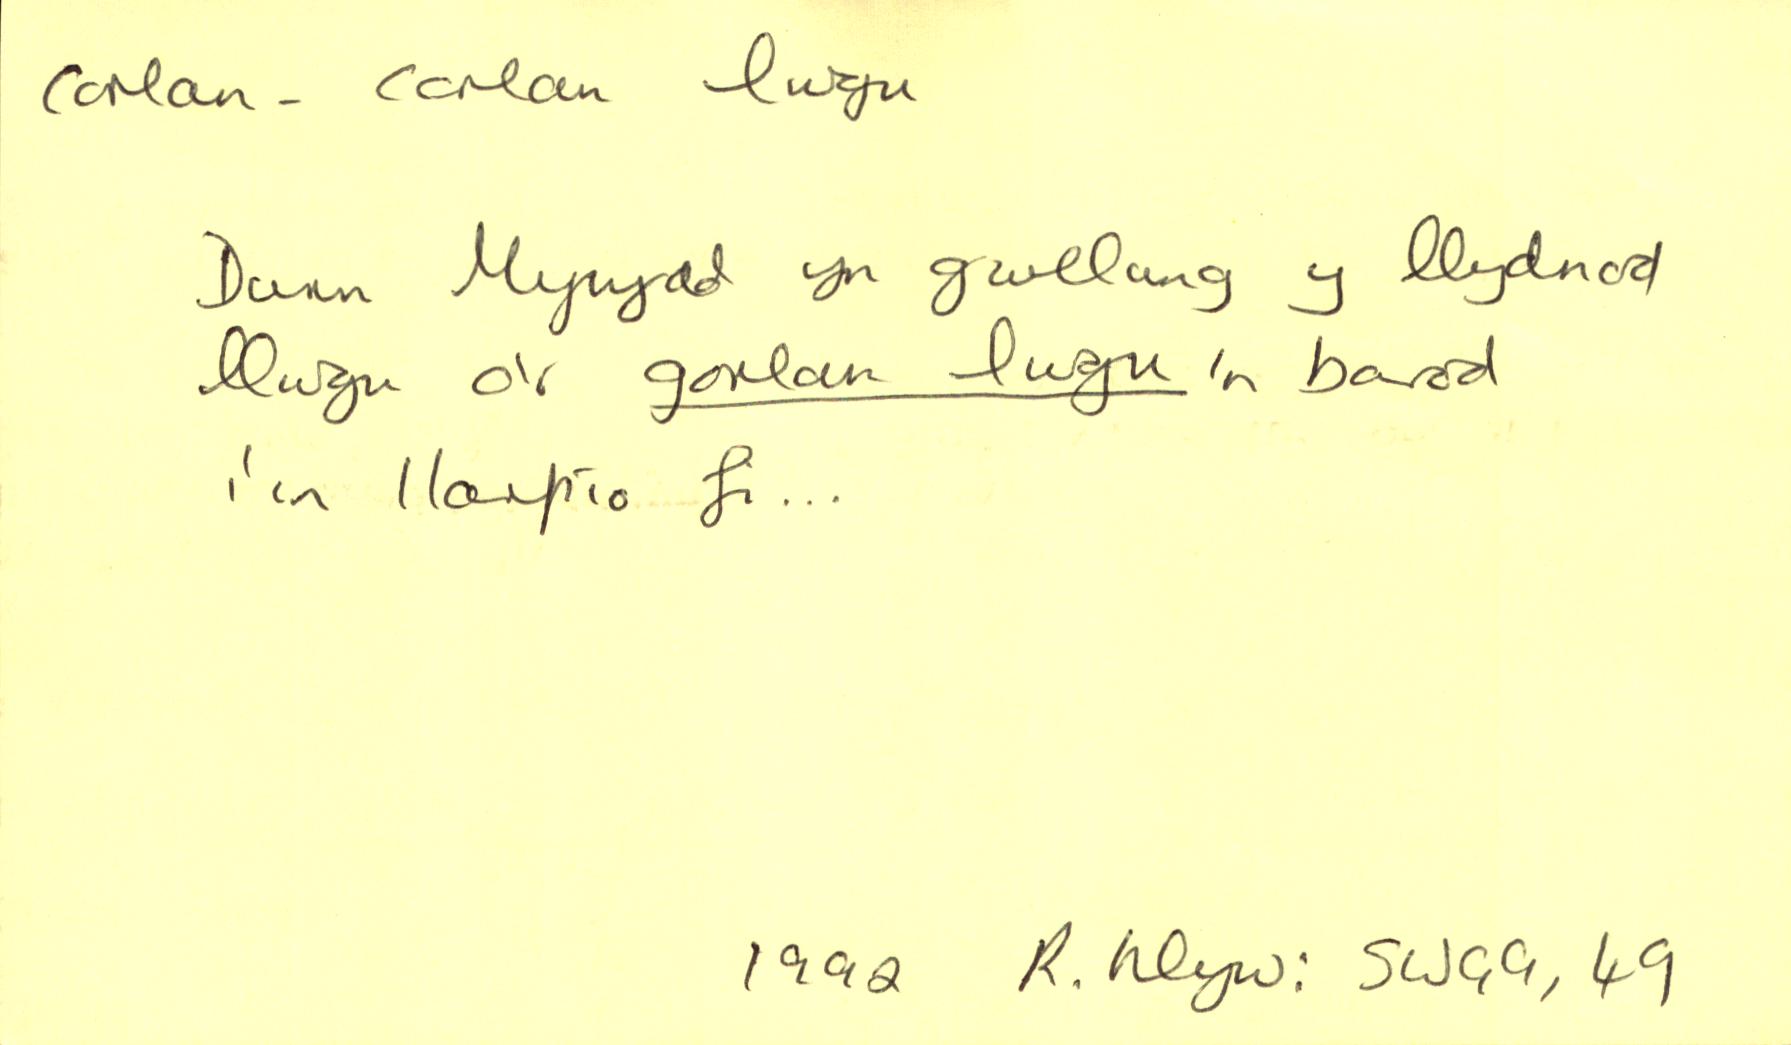 corlan - corlan lwgu
Dunn Mynydd yn gwllwng y llydnod
llwgu o'r gorlan lwgu 'n barod
i'm llarpio fi...
1992 R. Alyw: SWGG, 49